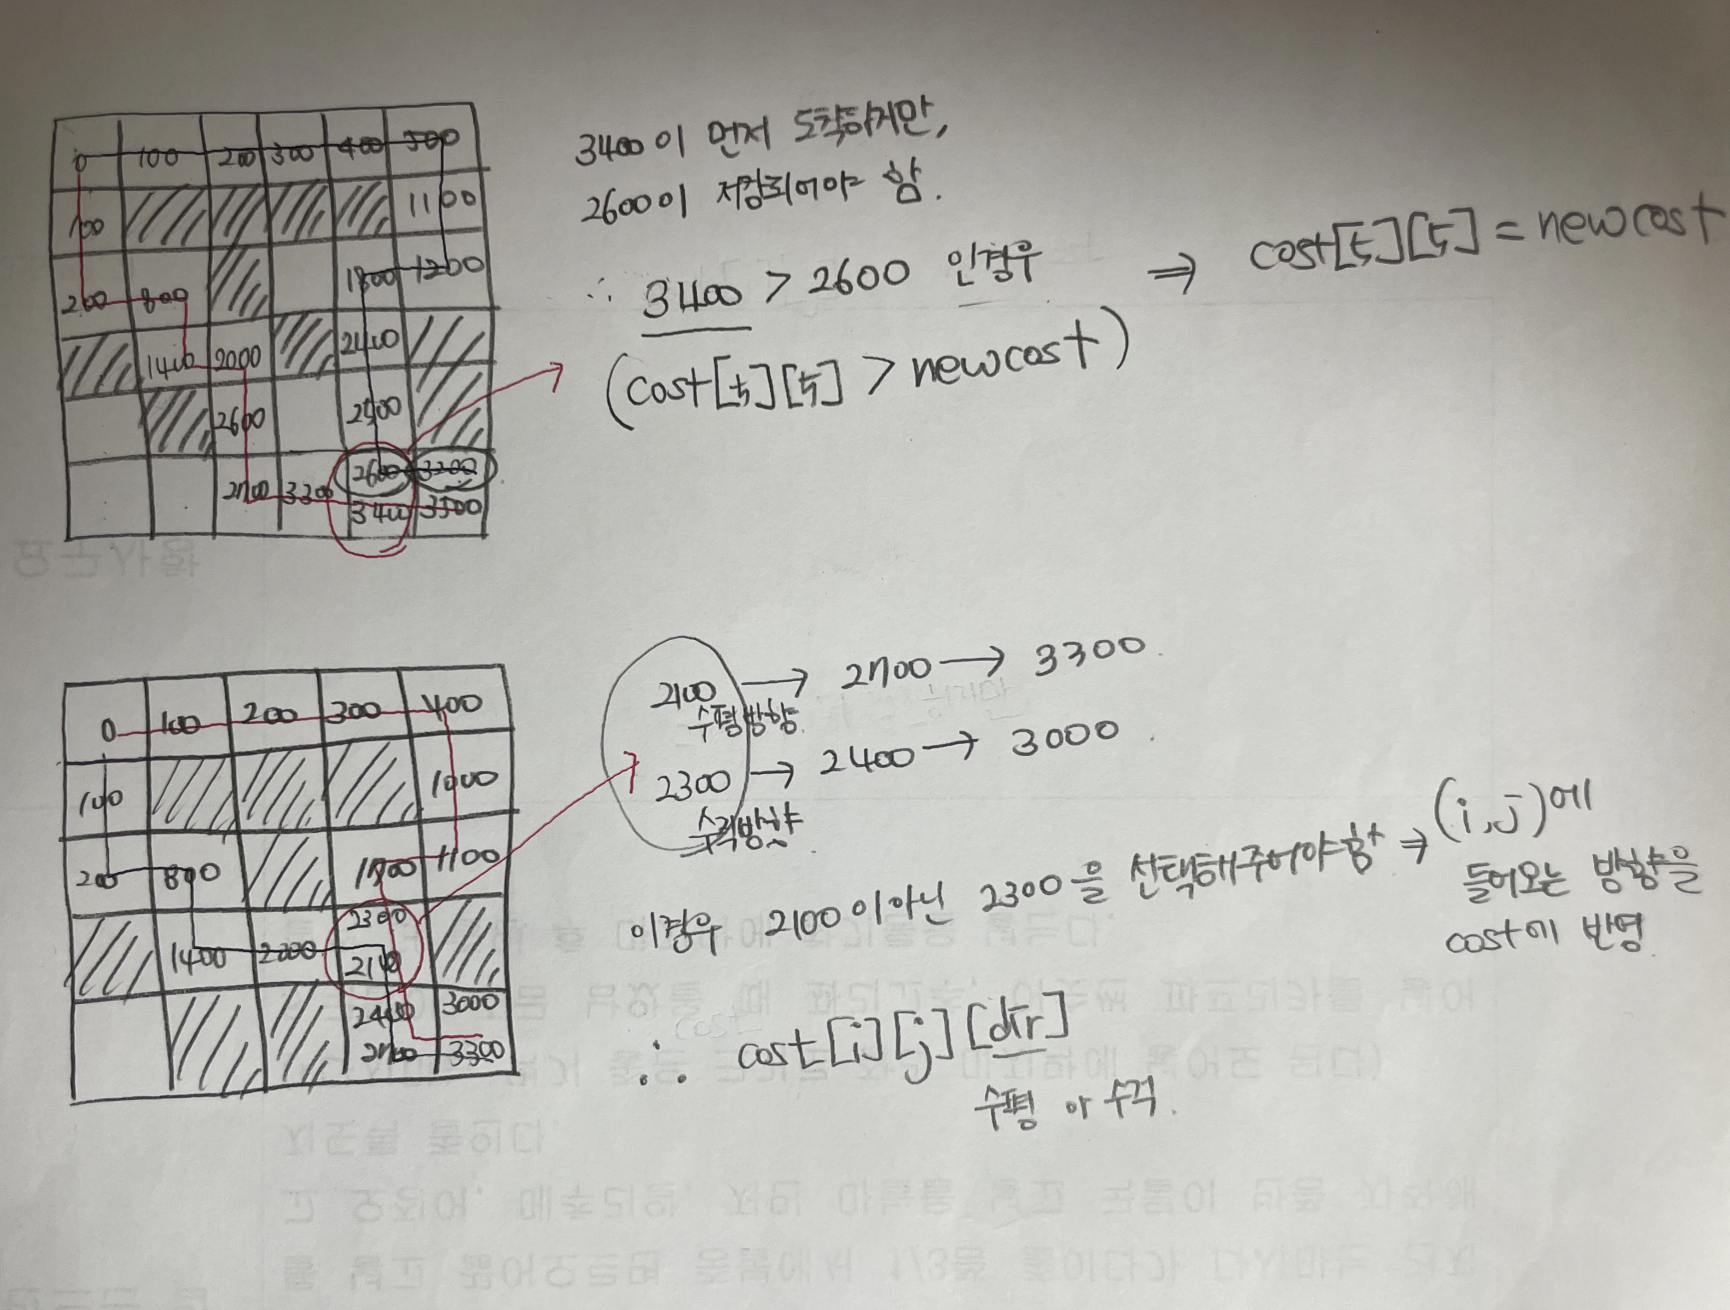 0 100 200 300 400 500
100 1100
200 800 1800 1200
1400 2000 2400
2600 2500
2700 3300 2600 3200
3400 3500
3400이 먼저 도착하지만,
2600이 저장되어야 함.
∴ 3400 > 2600 인경우 ⇒ cost[ ][ ] = newcost
(cost[ ][ ] > newcost)
0 100 200 300 400
100 1000
200 800 1700 1100
2300
1400 2000 2100
2400 3000
2700 3300
2100 → 2700 → 3300
수평방향
2300 → 2400 → 3000
수직방향
이경우 2100이아닌 2300을 선택해주어야함 ⇒ (i,j)에
들어오는 방향을
cost에 반영
∴ cost[i][j][dir]
수평 or 수직.